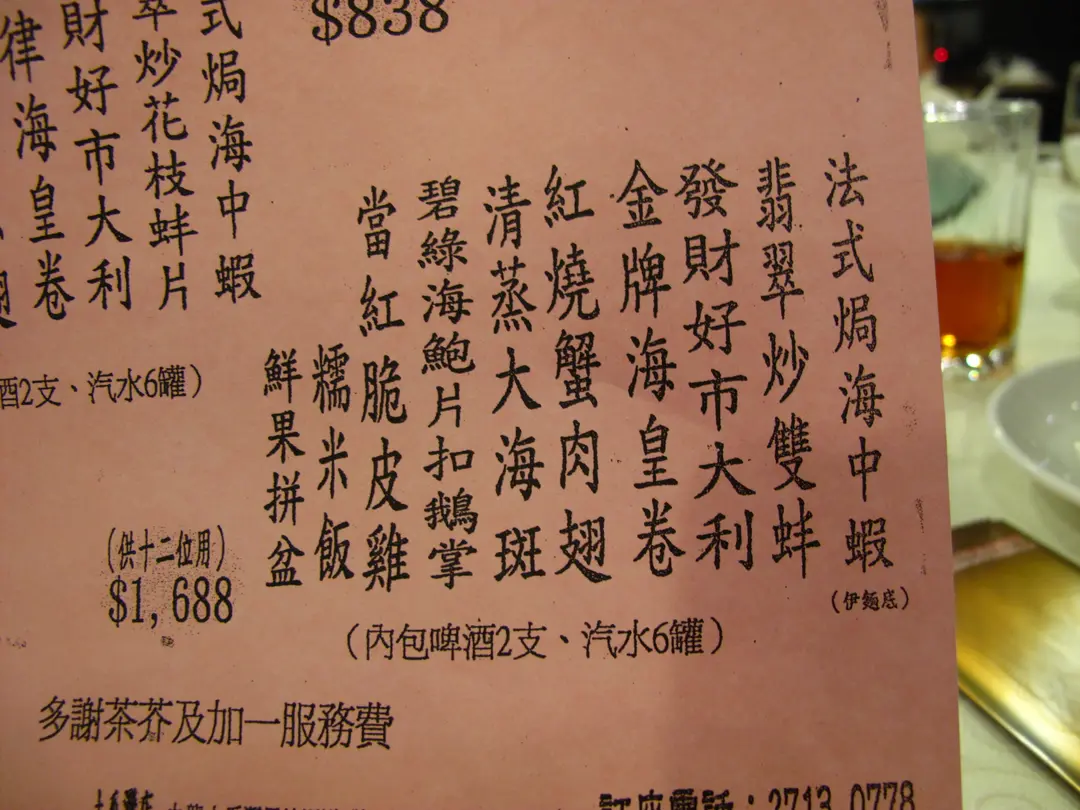 $838
法式焗海中蝦
(伊麵底)
翡翠炒雙蚌
發財好市大利
金牌海皇卷
紅燒蟹肉翅
清蒸大海斑
碧綠海鮑片扣鵝掌
當紅脆皮雞
糯米飯
鮮果拼盆
(供十二位用)
$1,688
(內包啤酒2支、汽水6罐)
式焗海中蝦
翠炒花枝蚌片
財好市大利
律海皇卷
酒2支、汽水6罐)
多謝茶芥及加一服務費
訂座電話:2713 0778